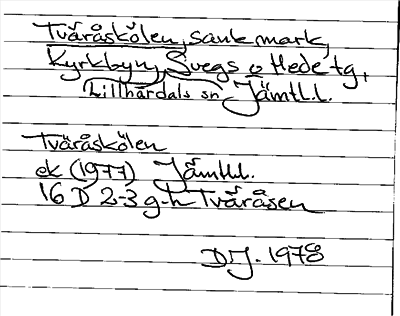 Tväråskölen, sank mark,
Kyrkbyn, Svegs o Hede tg,
Lillhärdals sn Jämtl.l.
Tväråskölen
ek (1977) Jämtl.l.
16 D 2-3 g-h Tväråsen
DJ. 1978